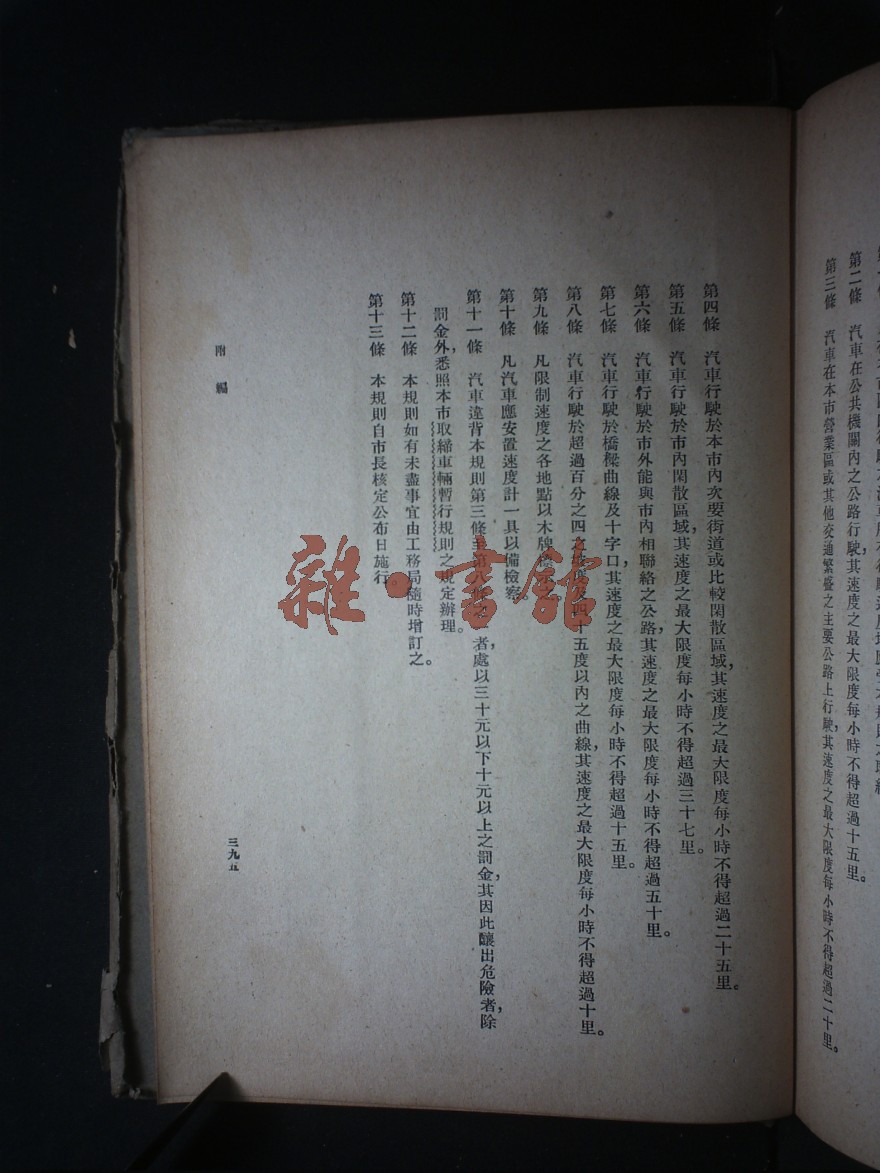 第二條　汽車在公共機關內之公路行駛，其速度之最大限度每小時不得超過十五里。
第三條　汽車在本市營業區或其他交通繁盛之主要公路上行駛，其速度之最大限度每小時不得超過二十里。
第四條　汽車行駛於本市內次要街道或比較閑散區域，其速度之最大限度每小時不得超過二十五里。
第五條　汽車行駛於市內閑散區域，其速度之最大限度每小時不得超過三十七里。
第六條　汽車行駛於市外能與市內相聯絡之公路，其速度之最大限度每小時不得超過五十里。
第七條　汽車行駛於橋樑曲線及十字口，其速度之最大限度每小時不得超過十五里。
第八條　汽車行駛於超過百分之四之坡度及四十五度以內之曲線，其速度之最大限度每小時不得超過十里。
第九條　凡限制速度之各地點以木牌標示之。
第十條　凡汽車應安置速度計一具以備檢察。
第十一條　汽車違背本規則第三條至第八條之一者，處以三十元以下十元以上之罰金，其因此釀出危險者，除
罰金外，悉照本市取締車輛暫行規則之規定辦理。
第十二條　本規則如有未盡事宜由工務局隨時增訂之。
第十三條　本規則自市長核定公布日施行。
附　編
三九五
雜·書館